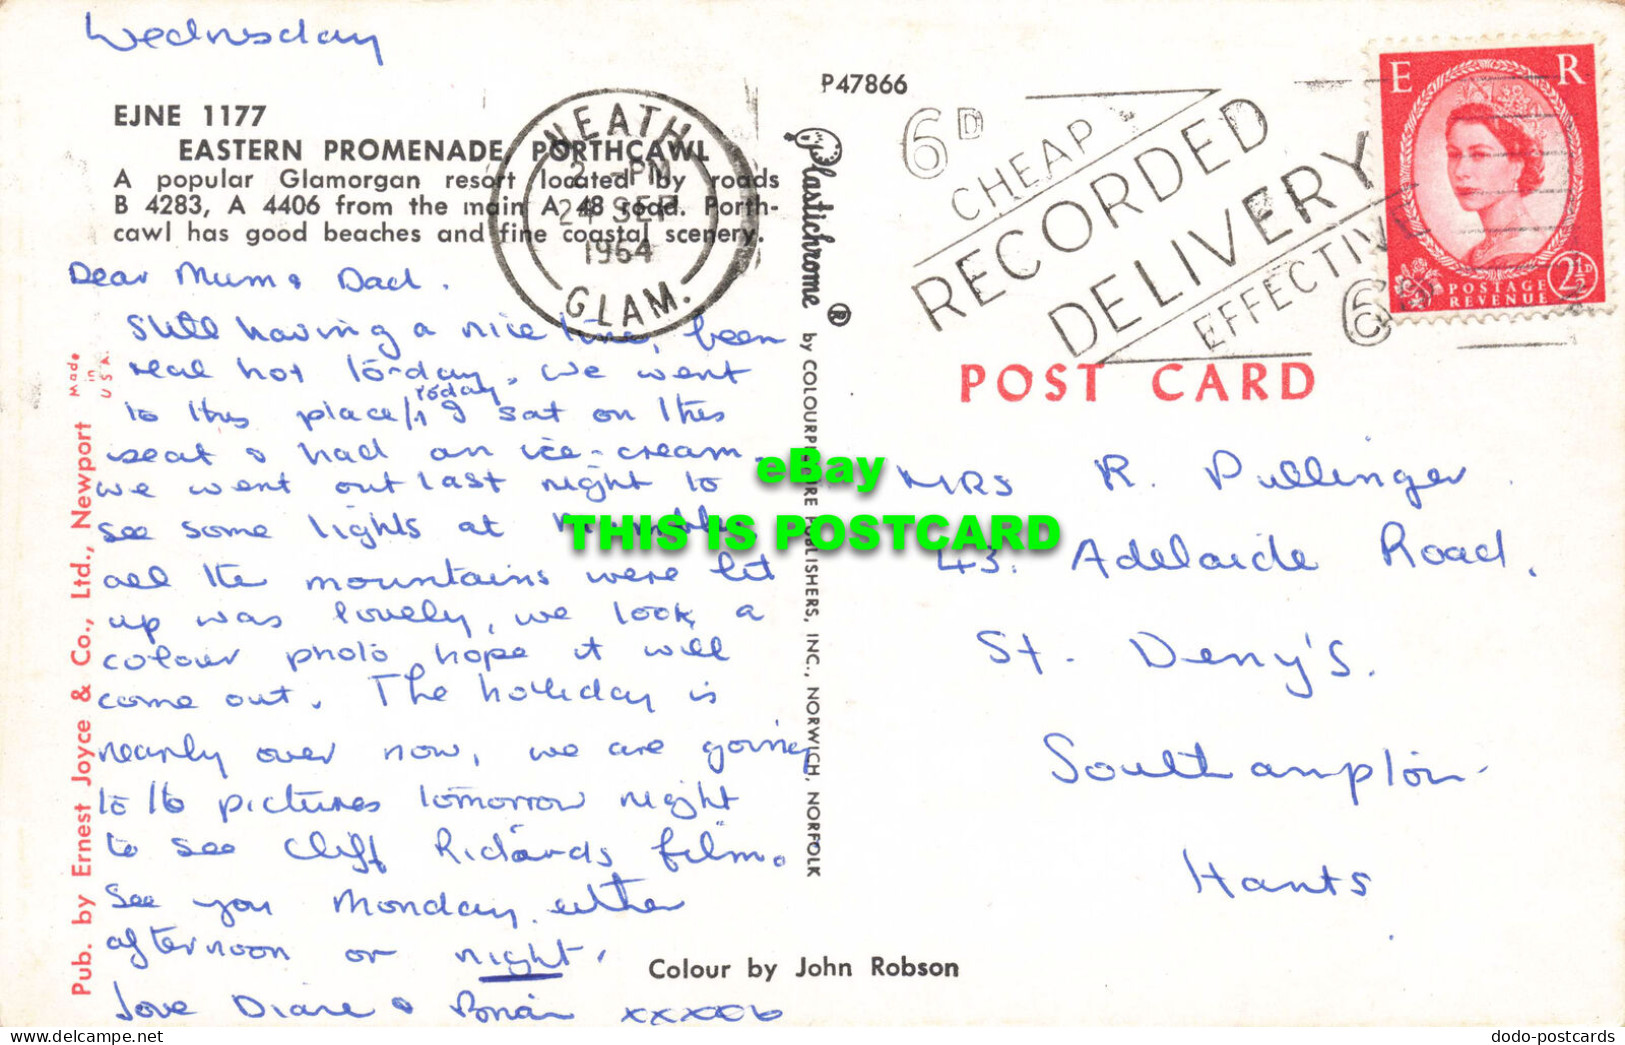 Wednesday
EJNE 1177
EASTERN PROMENADE, PORTHCAWL
A popular Glamorgan resort located by roads
B 4283, A 4406 from the main A 48 road. Porth-
cawl has good beaches and fine coastal scenery.
Dear Mum & Dad.
Still having a nice time, been
real hot to-day. We went
to this place / today & sat on this
seat & had an ice-cream.
we went out last night to
see some lights at
all the mountains were lit
up was lovely, we took a
colour photo hope it will
come out. The holiday is
nearly over now, we are going
to to pictures tomorrow night
to see Cliff Richards film.
See you Monday either
afternoon or night.
Love Diane & Brian xxxxx
Pub. by Ernest Joyce & Co., Ltd., Newport
Made
in
U S A
NEATH
2 - PM
24 SEP
1964
GLAM.
Plastichrome ® by COLOURPICTURE PUBLISHERS, INC., NORWICH, NORFOLK
P47866
6D
CHEAP
RECORDED
DELIVERY
EFFECTIVE
6D
E R
POSTAGE
REVENUE
2½D
POST CARD
MRS R. Pullinger.
43. Adelaide Road.
St. Deny's.
Southampton.
Hants
Colour by John Robson
eBay
THIS IS POSTCARD
Delcampe.net
dodo-postcards